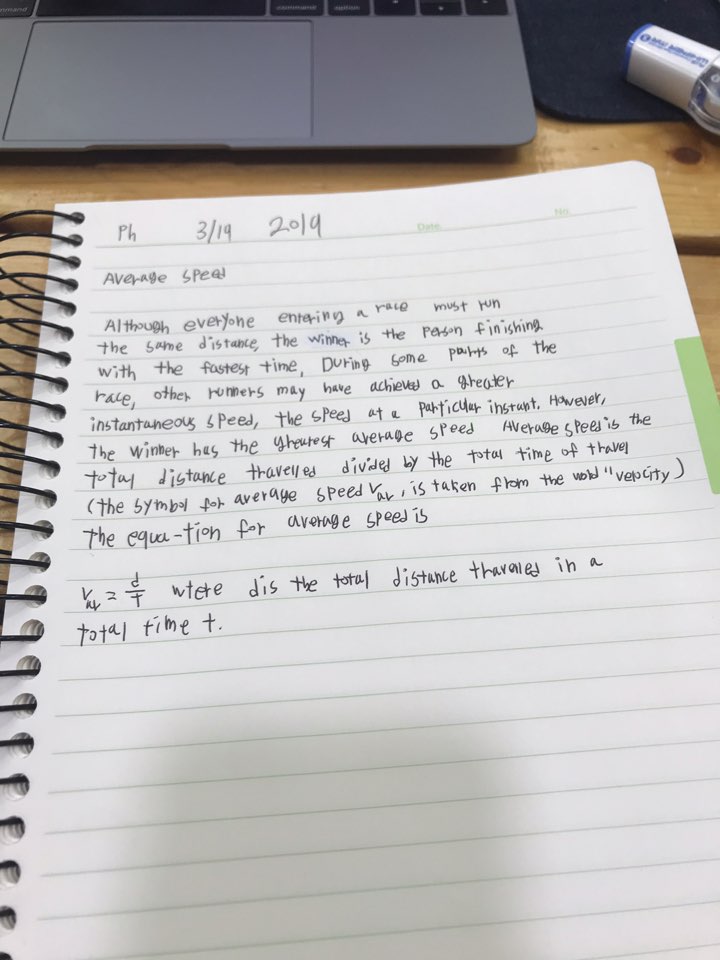 command
command
option
Ph 3/19 2019
Date.
No.
Average speed
Although everyone entering a race must run
the same distance, the winner is the person finishing
with the fastest time, During some parts of the
race, other runners may have achieved a greater
instantaneous speed, the speed at a particular instant. However,
the winner has the greatest average speed Average speed is the
total distance travelled divided by the total time of travel
(the symbol for average speed Vav, is taken from the word "velocity)
the equa-tion for average speed is
Vav = d/T wtere d is the total distance travelled in a
total time t.